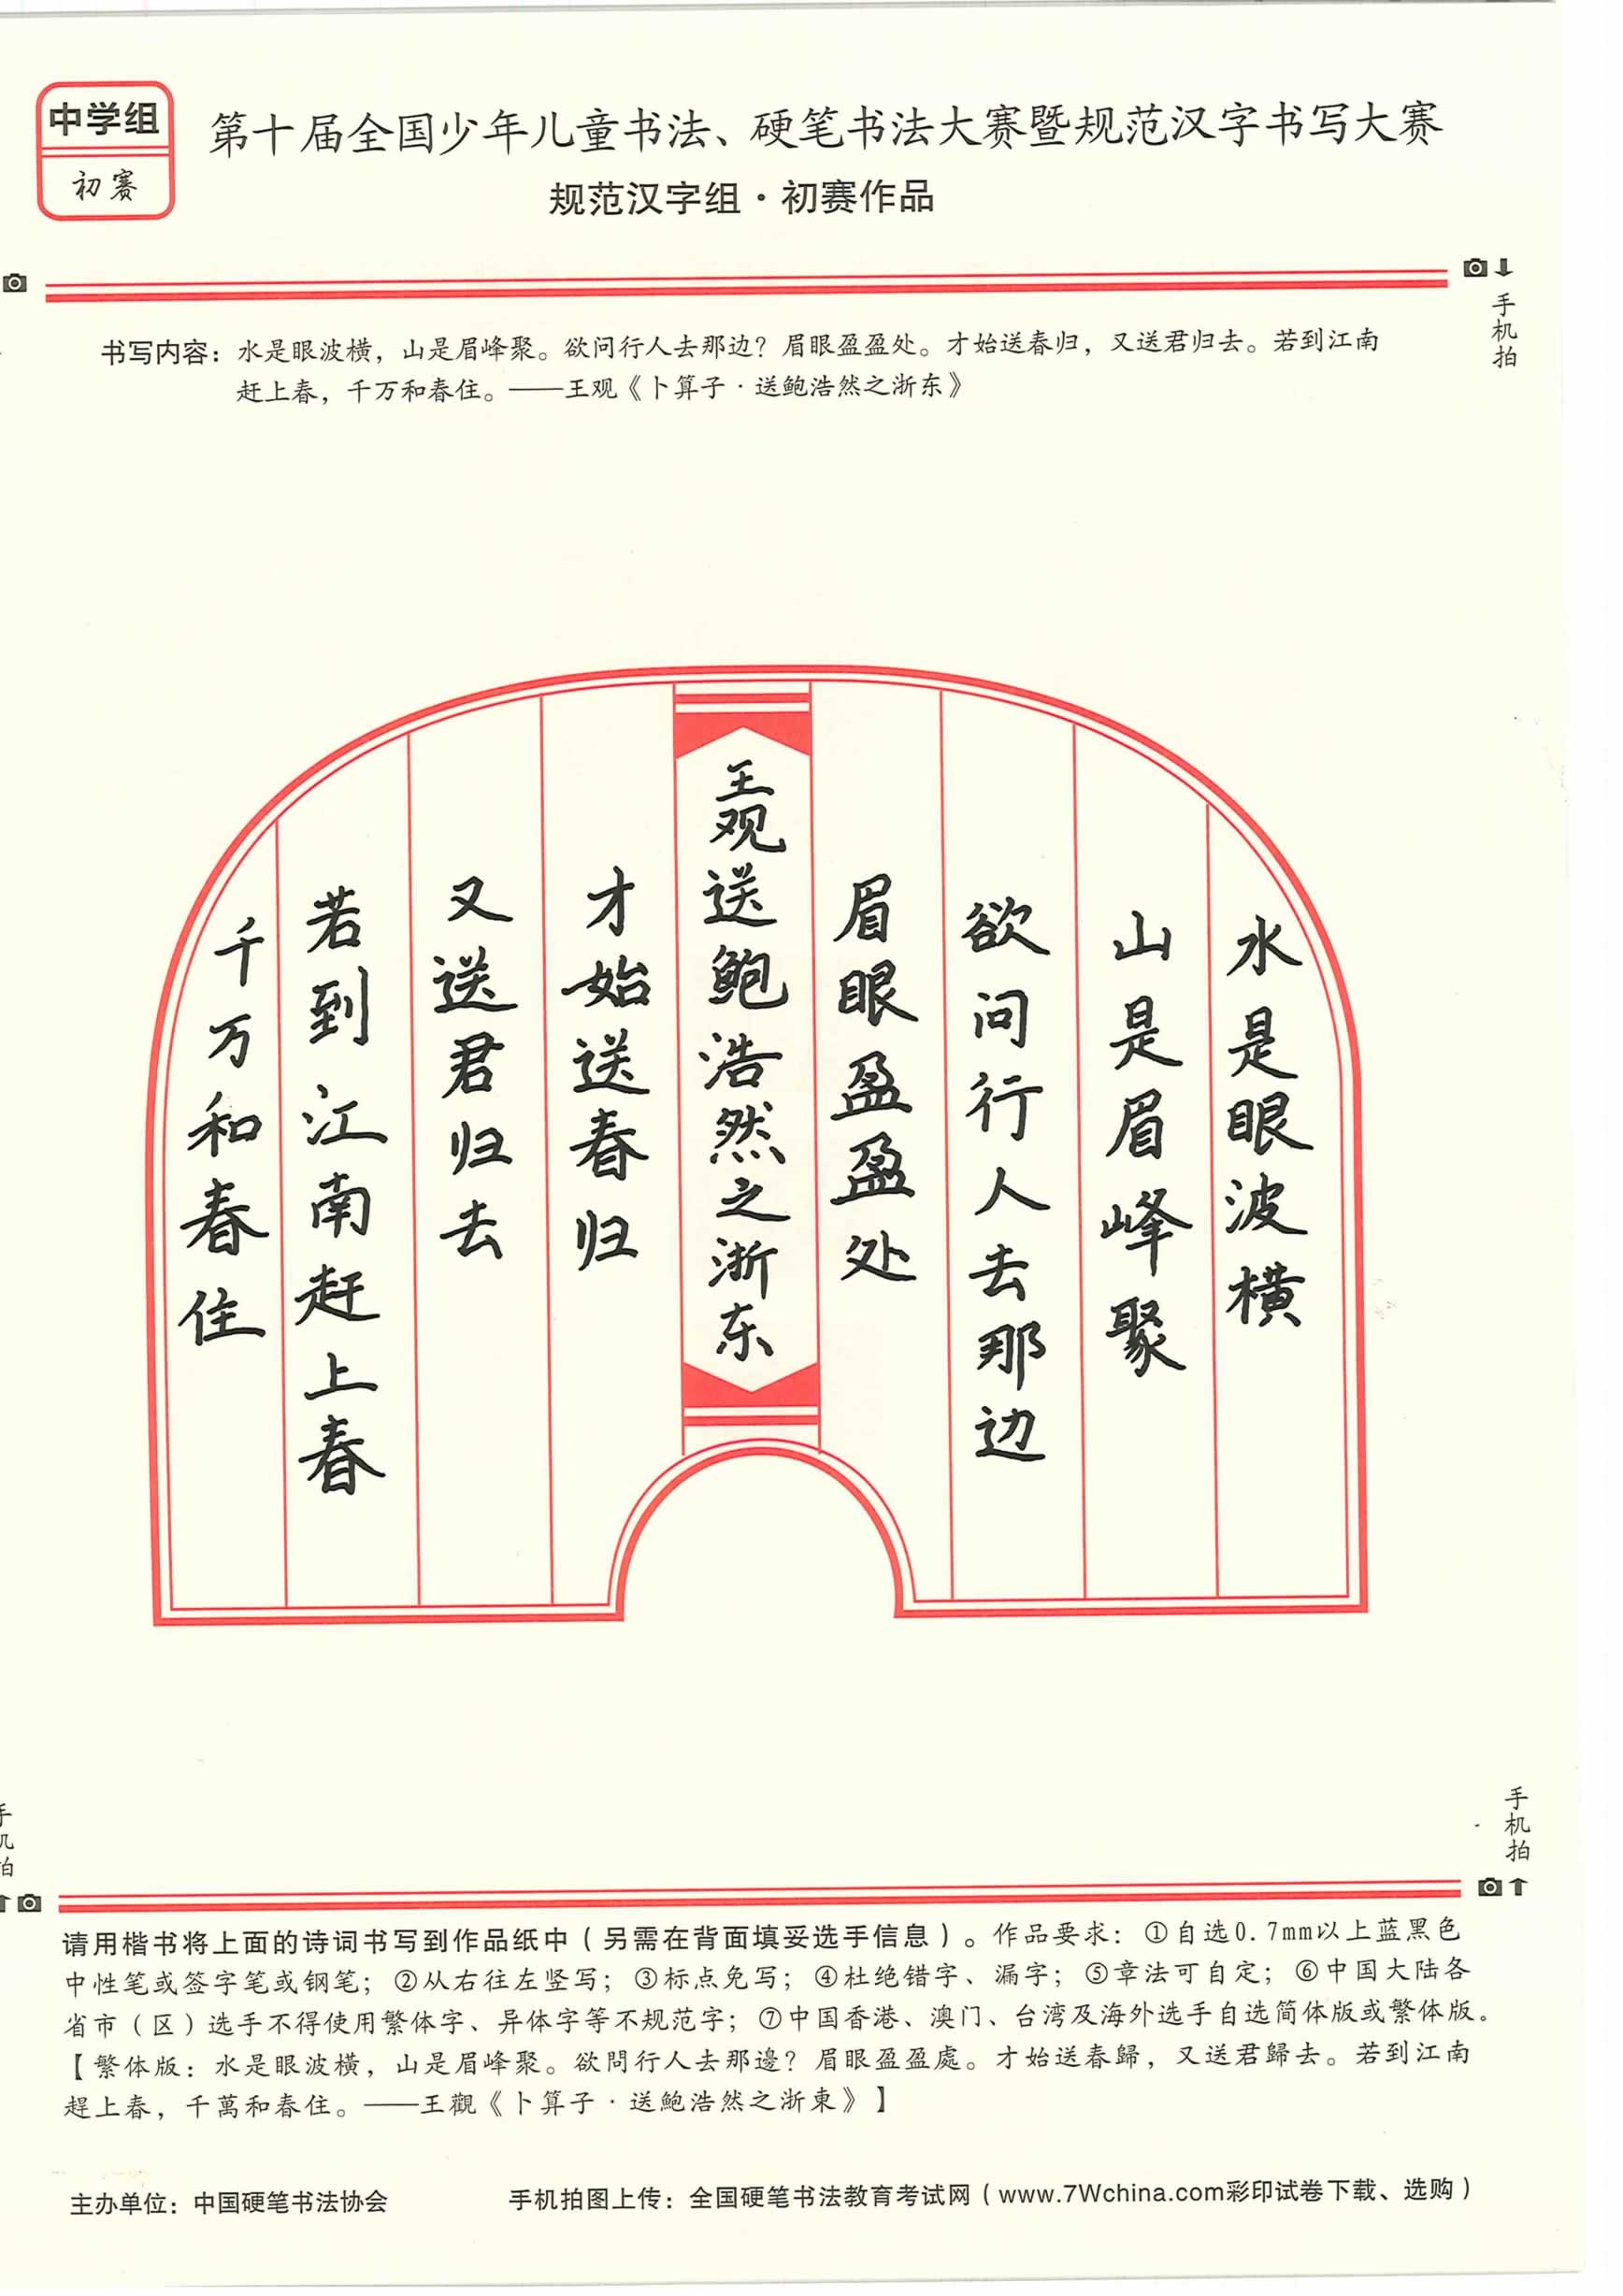 中学组
初赛
第十届全国少年儿童书法、硬笔书法大赛暨规范汉字书写大赛
规范汉字组·初赛作品
手机拍
书写内容：水是眼波横，山是眉峰聚。欲问行人去那边？眉眼盈盈处。才始送春归，又送君归去。若到江南
赶上春，千万和春住。——王观《卜算子·送鲍浩然之浙东》
水是眼波横
山是眉峰聚
欲问行人去那边
眉眼盈盈处
王观送鲍浩然之浙东
才始送春归
又送君归去
若到江南赶上春
千万和春住
手机拍
手机拍
请用楷书将上面的诗词书写到作品纸中（另需在背面填妥选手信息）。作品要求：①自选0.7mm以上蓝黑色
中性笔或签字笔或钢笔；②从右往左竖写；③标点免写；④杜绝错字、漏字；⑤章法可自定；⑥中国大陆各
省市（区）选手不得使用繁体字、异体字等不规范字；⑦中国香港、澳门、台湾及海外选手自选简体版或繁体版。
【繁体版：水是眼波橫，山是眉峰聚。欲問行人去那邊？眉眼盈盈處。才始送春歸，又送君歸去。若到江南
趕上春，千萬和春住。——王觀《卜算子·送鮑浩然之浙東》】
主办单位：中国硬笔书法协会
手机拍图上传：全国硬笔书法教育考试网（www.7Wchina.com彩印试卷下载、选购）